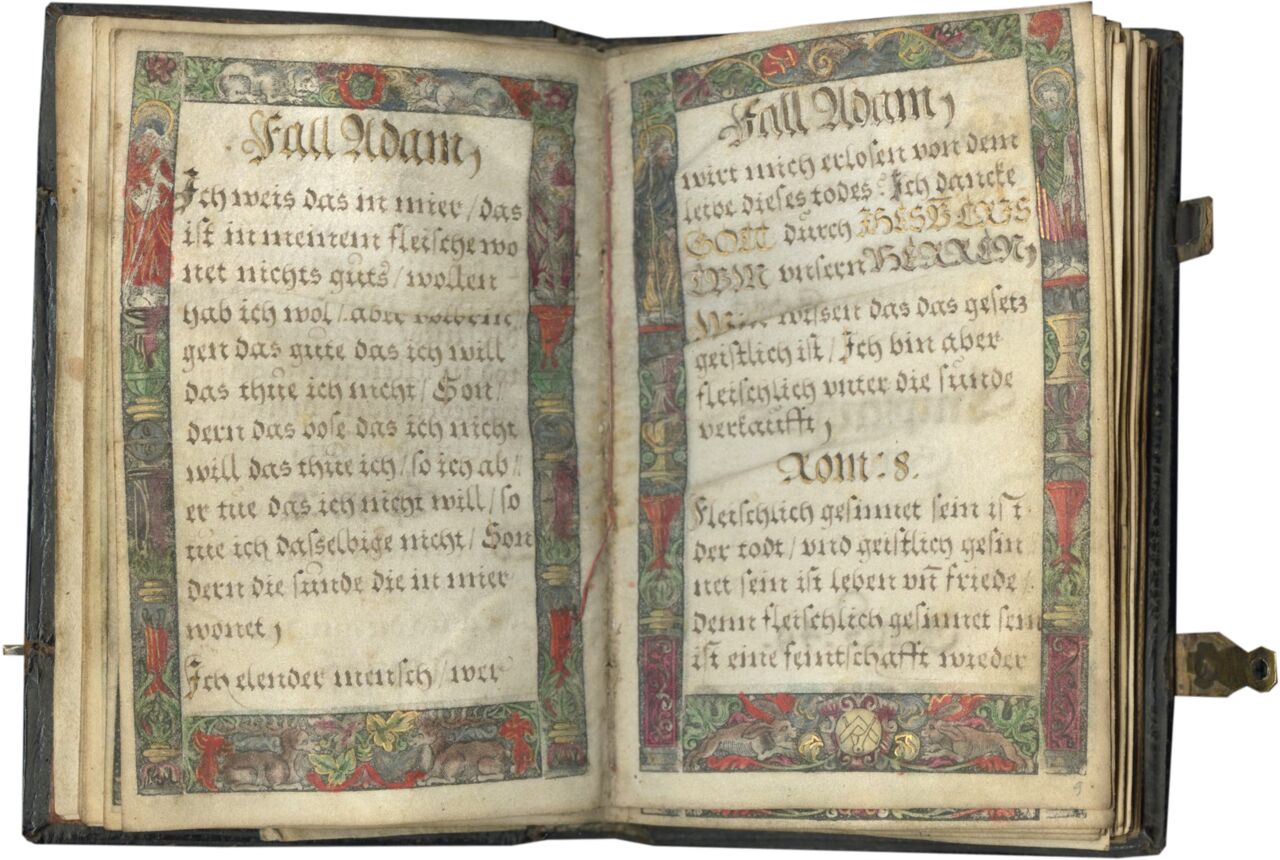 Fall Adam,
Ich weis das in mier / das
ist in meinem fleische wo
net nichts guts / wollen
hab ich wol / aber volbrin
gen das gute das ich will
das thue ich nicht / Son
dern das bose das ich nicht
will das thue ich / so ich ab
er tue das ich nicht will / so
tue ich dasselbige nicht / Son
dern die sunde die in mier
wonet,
Ich elender mensch / wer
Fall Adam,
wirt mich erlosen von dem
leibe dieses todes? Ich dancke
GOTT durch IHESVM
unsern HERREN,
Wir wissen das das gesetz
geistlich ist / Ich bin aber
fleischlich vnter die sunde
verkaufft,
Rom: 8.
Fleischlich gesinnet sein ist
der todt / vnd geistlich gesin
net sein ist leben vñ friede /
denn fleischlich gesinnet sein
ist eine feintschafft wieder
9